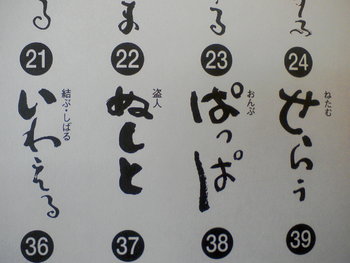 21
22
23
24
結ぶ・しばる
いわえる
36
盗人
ぬしと
37
おんぶ
ぱっぱ
38
ねたむ
せらう
39